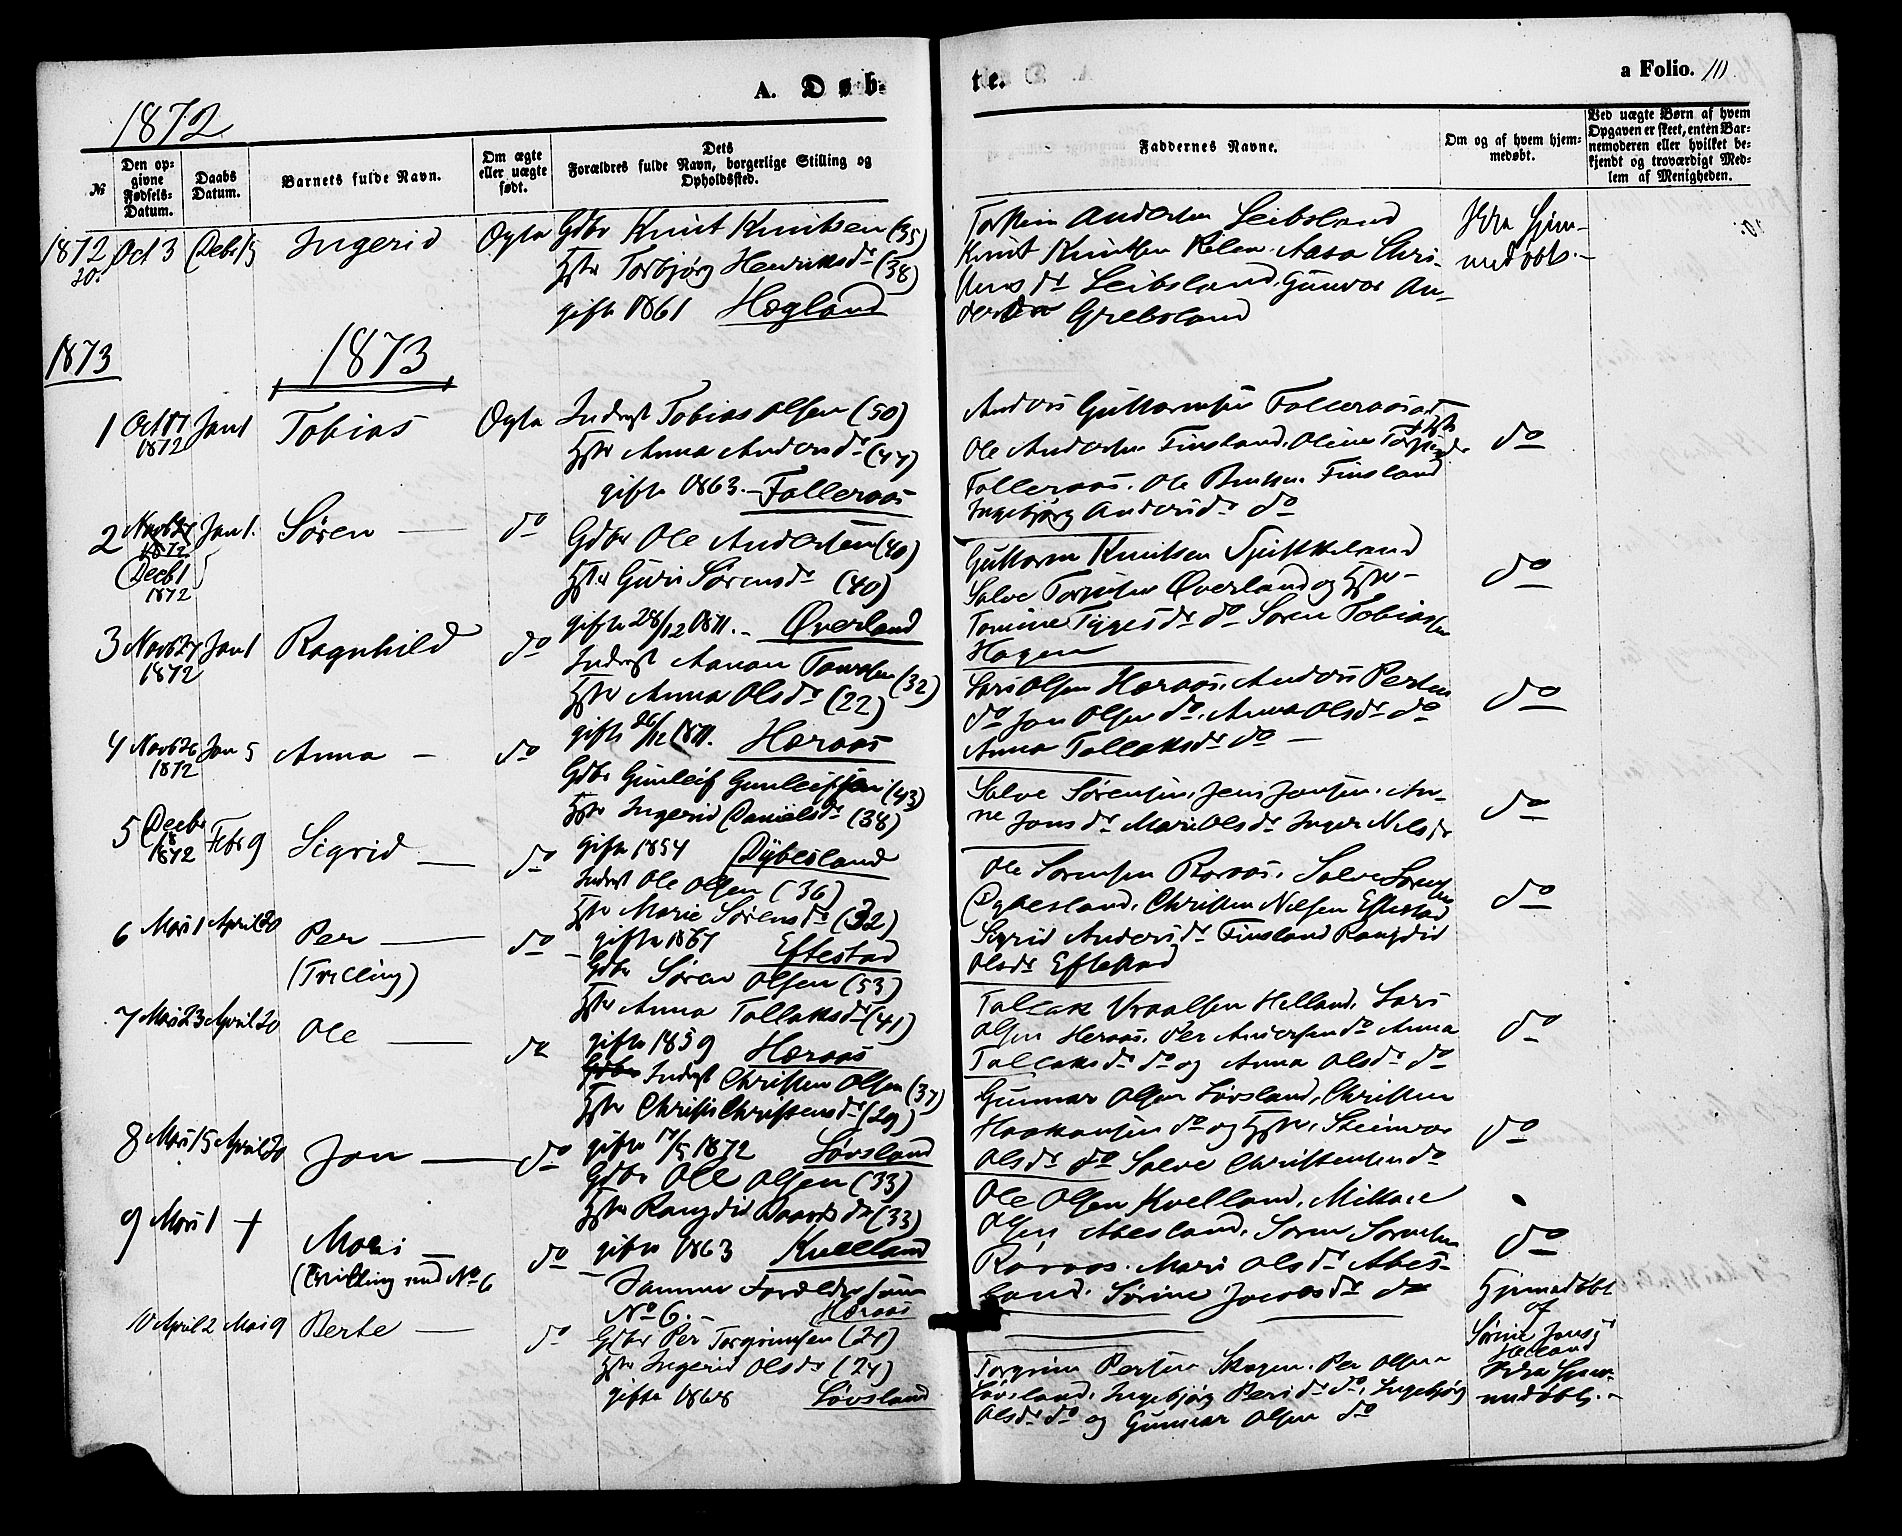 A. Døb-
te.
a Folio. 10.
1872
№
Den op-
givne
Fødsels-
Datum.
Daabs
Datum.
Barnets fulde Navn.
Om ægte
eller uægte
født.
Dets
Forældres fulde Navn, borgerlige Stilling og
Opholdssted.
Faddernes Navne.
Om og af hvem hjem-
medøbt.
Ved uægte Børn af hvem
Opgaven er skeet, enten Bar-
nemoderen eller hvilket be-
kjendt og troværdigt Med-
lem af Menigheden.
1872 Oct 3
20.
Ingerid
Ægte
Gdbr Knut Knutsen (35)
Hstr Torbjørg Henriksdr (38)
gifte 1861 Hægland
Andersen Leibsland
Knut Knutsen
Leibsland, Gunvor An-
Grebsland
1873
1873
1 Jan 1
1872
Tobias
Ægte
Tobias Olsen (50)
Hstr Anna Andersdr (47)
gifte 1863. – Falleraas
Anders Guttormsen Falleraas og Hstr
Ole Andersen Finsland, Oline
Falleraas. Ole Finsland
Ingebjørg Andersdr do
do
2 Jan 1.
1872
Decb 1
1872
Søren —
do
Gdbr Ole Andersen (40)
Hstr Guri Sørensdr (40)
gifte 28/12 1871. – Øverland
Guttorm Knutsen
Salve Øverland og Hstr
do Søren Tobiassen
Hagen
do
3 Novb 27 Jan 1
1872
Ragnhild
do
Aanen (32)
Hstr Anna Olsdr (22)
gifte 26/12 1871. Høraas
Lars Olsen Høraas. Anders Persen
do Jon Olsen do. Anna Olsdr do
Anna Tallaksdr do –
do
4 Novb 26 Jan 5
1872
Anna –
do
Gdbr Gunleif Gunleifsen (43)
Hstr Ingerid Danielsdr (38)
gifte 1854 Dybesland
Salve Sørensen, Jens Jonsen. An-
ne Jonsdr Mari Olsdr Inger Nilsdr
do
5 Decbr Febr 9
1872
Sigrid —
do
Ole Olsen (36)
Hstr Marie Sørensdr (32)
gifte 1867 Eftestad
Ole Sørensen Røraas. Salve Sørensen
Dybesland. Christen Nilsen Eftestad
Sigrid Andersdr Finsland
Olsdr Eftestad
do
6 Mars 1 April 20
Per —
(Trilling)
do
Gdbr Søren Olsen (53)
Hstr Anna Tallaksdr (41)
gifte 1859 Høraas
Tallak Helland. Lars
Olsen Høraas. Per Andersen do Anna
Tallaksdr do og Anna Olsdr do
do
7 Mars 23 April 20
Ole —
do
Christen Olsen (37)
Hstr Christensdr (29)
gifte 1872 Løvsland
Gunnar Olsen Løvsland, Christen
Haakonsen do og Hstr. Steinvor
Olsdr do Salve Christensen do
do
8 Mars 15 April 20
Jon —
do
Gdbr Ole Olsen (33)
Hstr (33)
gifte 1863 Kvelland
Ole Olsen Kvelland,
Olsen Abesland. Søren Sørensen
Røraas. Mari Olsdr Abes-
land. Sørine Jacobsdr do
do
9 Mars 1 +
Mari —
(Trilling med No 6
do
Samme Forældre som
No 6. – Høraas
Hjemmedøbt
af
Sørine
Helland
10 April 2 Mai 9
Berte —
do
Gdbr Per Torgrimsen
Hstr Ingerid Olsdr
gifte 1868 Løvsland
Torgrim Persen Per Olsen
Løvsland, Ingebjørg do, Ingebjørg
Olsdr do og Gunnar Olsen do